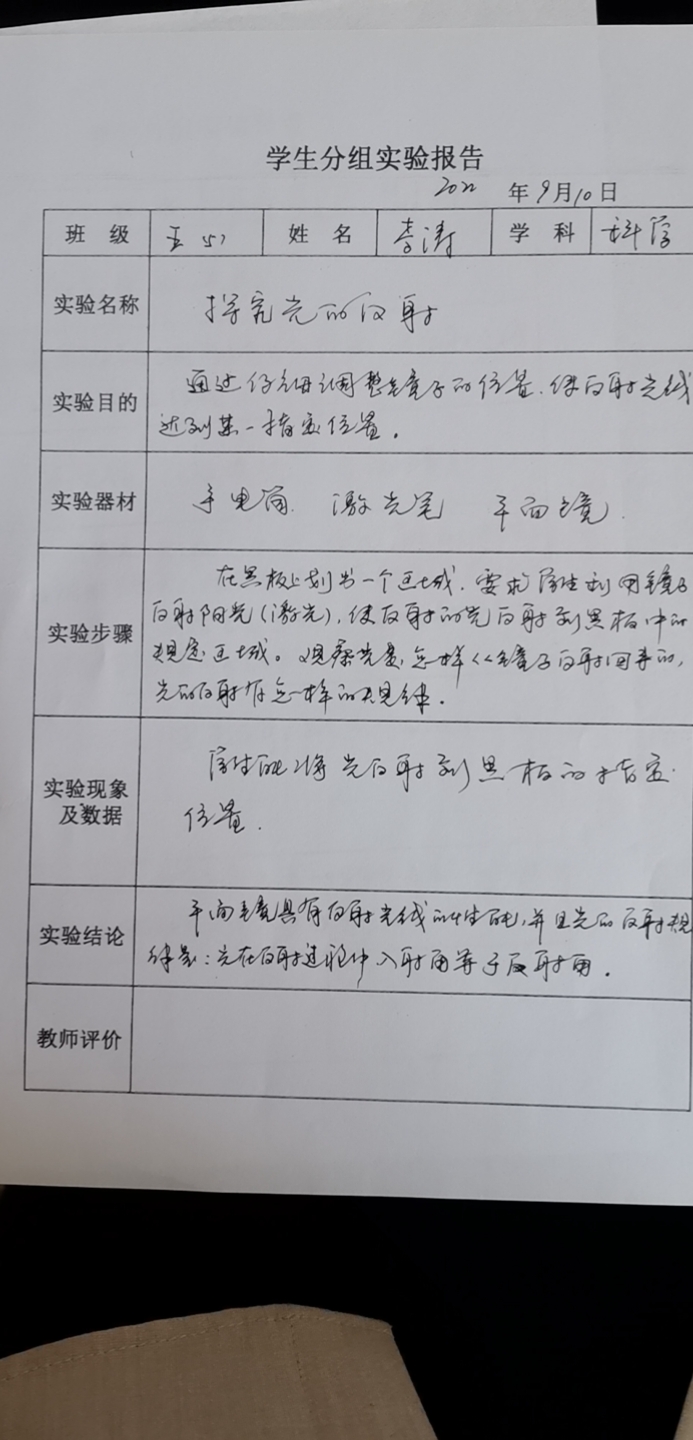 学生分组实验报告
2022 年9月10日
班 级 五(5) 姓 名 李涛 学 科 科学
实验名称 探究光的反射
实验目的 通过仔细调整镜子的位置,使反射光线
达到某一指定位置。
实验器材 手电筒 激光笔 平面镜
实验步骤 在黑板上划出一个区域,要求学生利用镜子
反射阳光(激光),使反射的光反射到黑板中的
规定区域。观察光是怎样从镜子反射回来的,
光的反射有怎样的规律。
实验现象
及数据 学生能将光反射到黑板的指定
位置。
实验结论 平面镜具有反射光线的性能,并且光的反射规
律是:光在反射过程中入射角等于反射角。
教师评价